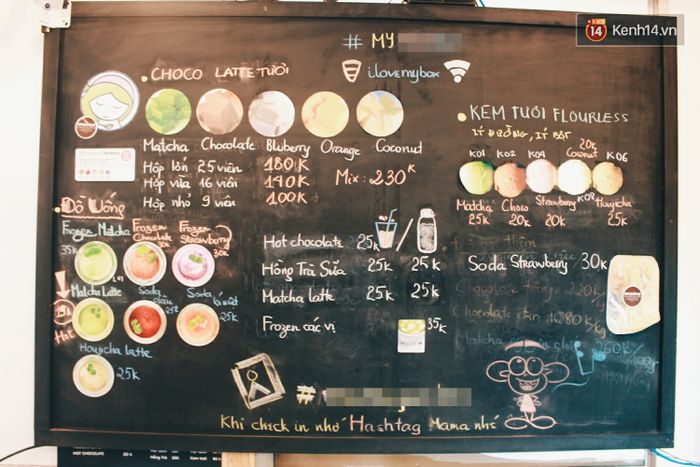 14 Kenh14.vn
# MY
CHOCO LATTE TƯƠI
ilovemybox
Matcha Chocolate Bluberry Orange Coconut
Hộp lớn 25 viên 180K
Hộp vừa 16 viên 140K
Hộp nhỏ 9 viên 100K
Mix: 230K
KEM TƯƠI FLOURLESS
ÍT ĐƯỜNG, ÍT BÉO
20k
K01 K02 K04 Coconut K06
Matcha Choco Strawberry Houjicha
25k 20k 20k 25k
Đồ Uống
Frozen Matcha 35k
Frozen Chocolate 30k
Frozen Strawberry 30k
Matcha Latte
Soda dâu 25k
Soda
25k
Hot
Houjicha latte
25k
Hot chocolate 25k
Hồng Trà Sữa 25k 25k
Matcha latte 25k 25k
Frozen các vị 35k
Soda Strawberry 30K
Chocolate trắng 220K
Chocolate đen 180K/kg
#
Khi check in nhớ Hashtag Mama nhé
HOT CHOCOLATE 20 k